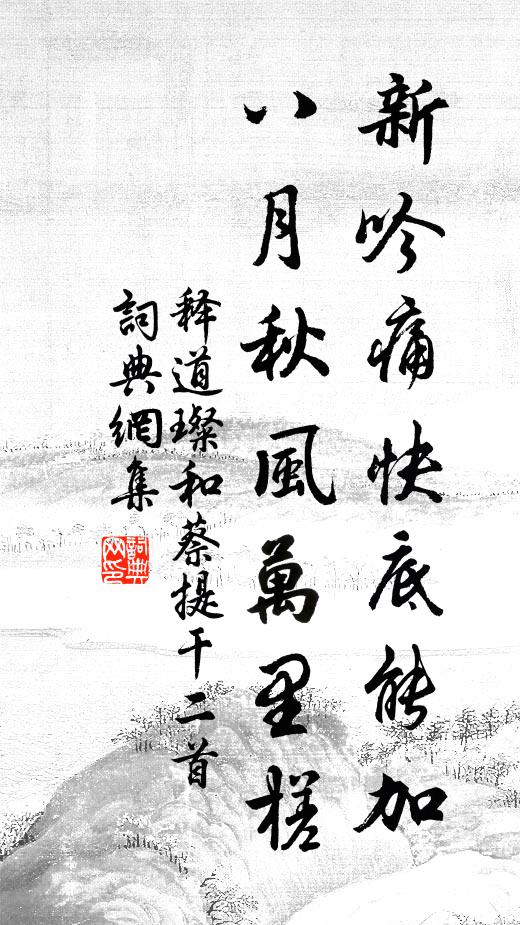 新吟痛快底能加
八月秋風萬里槎
释道璨和蔡提干二首
詞典網集
詞典
网印